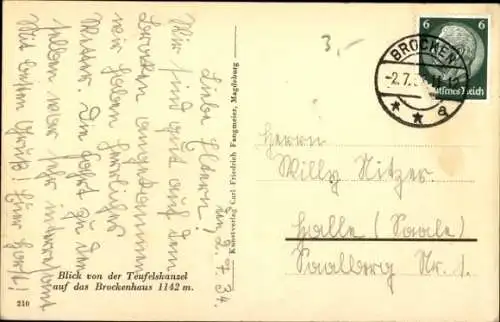 Liebe Eltern! den 2.7.34.
Wir sind gut auf dem
Brocken angekommen
wir haben herrliches
Wetter. Die Fahrt zu dem
selben war sehr interessant
Mit besten Gruß! Euer Horst!
Blick von der Teufelskanzel
auf das Brockenhaus 1142 m.
210
Kunstverlag Carl Friedrich Fangmeier, Magdeburg
3,-
BROCKEN
-2.7.3
* * a
6 6
Deutsches Reich
Herrn
Willy Nitzer
Halle (Saale)
Saalberg Nr. 1.